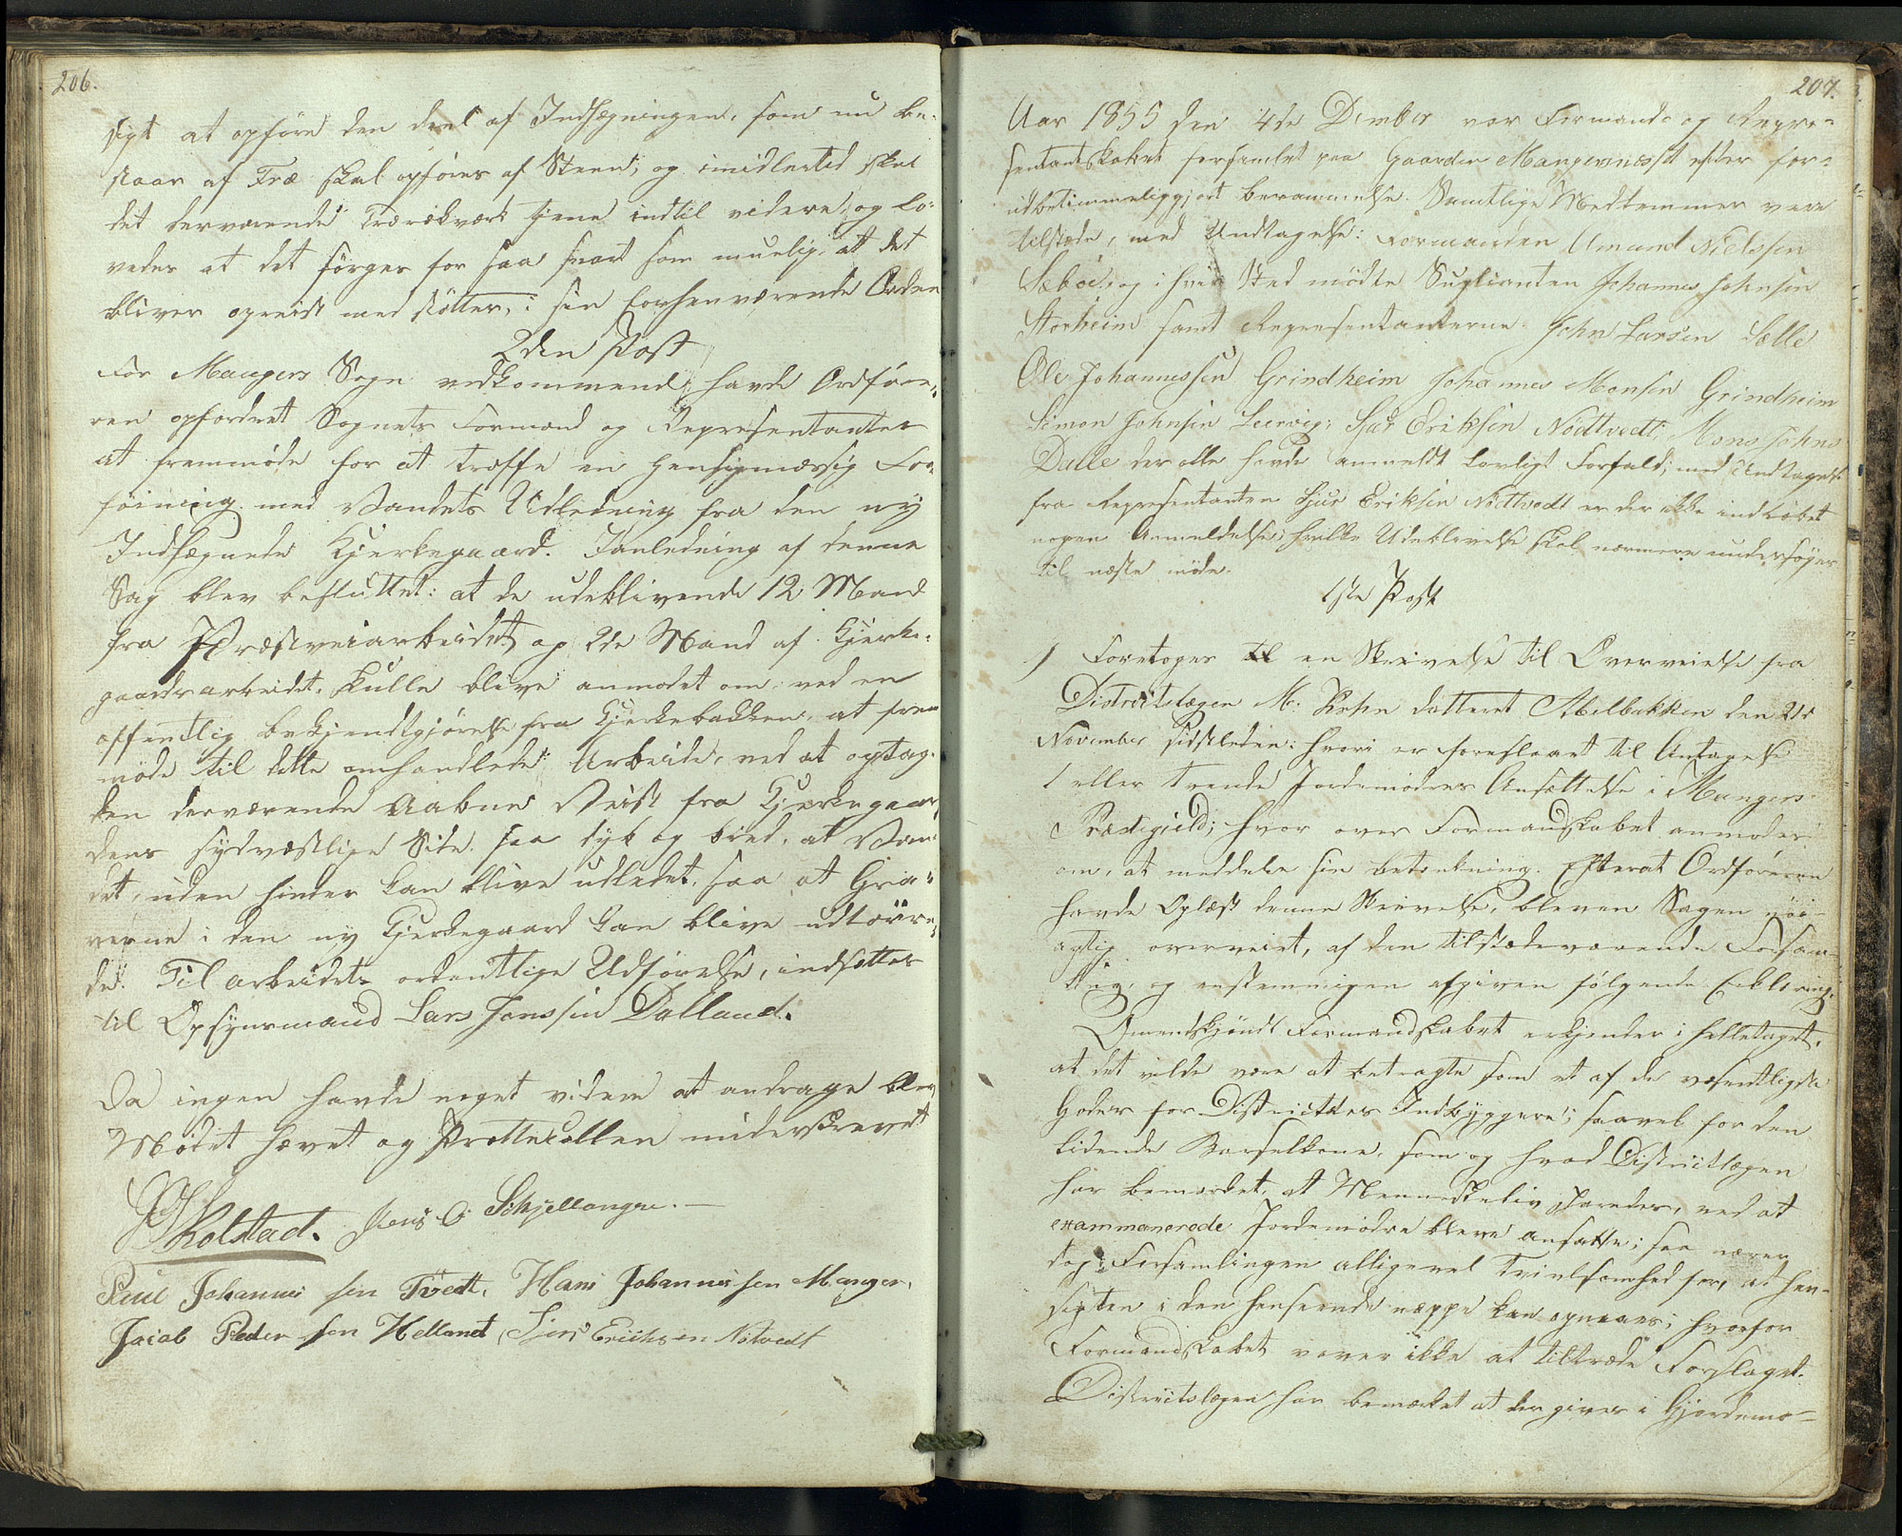 206.
sigt at opføre den deel af Indhægningen, som nu be-
staar af Træ skal opføres af Steen; og imidlertid skal
det derværende Trærækværk tjene indtil videre, og lo-
vedes at det sørges for saa snart som muelig, at det
bliver opreist med støtter, i sin forhenværende Orden
2den Post
For Mangers Sogn vedkommende, havde Ordføre-
ren opfordret Sognets Formænd og Repræsentanter
at fremmøde for at træffe en hensigtmæssig For-
føining med Vandets Udledning fra den ny
Indhægnede Kjerkegaard. I anledning af denne
Sag blev besluttet: at de udeblivende 12 Mand
fra Præsteveiarbeidet og 2de Mand af Kjerke-
gaardsarbeidet, skulle blive anmodet om, ved en
offentlig bekjendtgjørelse fra Kjerkebakken, at frem
møde til dette omhandlede Arbeide, ved at optag-
den derværende Aabne Veist fra Kjerkegaar
dens sydvæstlige Side saa dyb og bred, at Van-
det, uden hinder kan blive udledet, saa at Gra-
verne i den ny Kjerkegaard kan blive udtørre-
de. Til arbeidets ordentlige Udførelse, indsættes
til Opsynsmand Lars Jenssen Dalland.
Da ingen havde noget videre at andrage blev
Mødet hævet og Protlecollen underskrevet
Kolstad. Jens O. Schjellanger.
Poul Johannes sen Tvedt, Hans Johannissen Manger,
Jacob Peder sen Helland, Sjur Eriksen Notvedt
207.
Aar 1855 den 4de Dember var Formands og Repre-
sentantskabet forsamlet paa Gaarden Mangernæset efter for-
udbetimmeliggjort berammelse. Samtlige Medlemmer vare
tilstæde, med Undtagelse: Formanden Amund Nielssen
Sæbøe, og i hvis Sted mødte Suplianten Johannes Johnsen
Storheim samt Representanterne John Larsen Sælle
Ole Johannessen Grindheim Johannes Monsen Grindheim
Simon Johnsen Leervig, Sjur Eriksen Nødtvedt, Mons Johns
Dalle der alle havde anmeldt lovligt Forfald; med Undtagelse
fra Representanten Sjur Eriksen Nødtvedt er der ikke indløbet
nogen Anmeldelse, hvilke Udeblevelse skal nærmere undersøges
til næste møde.
1ste Post
1 Foretoges en Skrivelse til Overveielse fra
Districtslægen M. Rohn datteret Alvelbakken den 21d
November sidstleden: hvori er foreslaaet til Antagelse
1 eller tvende Jordemødres Ansættelse i Mangers
Præstegield; hvor over Formandskabet anmodes
om, at meddele sin betænkning. Efterat Ordføreren
havde Oplæst denne Skrivelse, bleven Sagen nøi-
agtig overveiet, af den tilstædeværende Forsam-
ling, og eenstemmigen afgiven følgende Erklæring.
Omendskjøndt Formandskabet erkjender i helletaget,
at det vilde være at betragte som et af de væsentligste
Goder for Districttes Indbyggere; saavel for den
lidende Barselkone, som og hvad Districtslægen
har bemærket, at Menneskeliv sparedes, ved at
exammenerede Jordemødre bleve ansatte; saa nærer
dog Forsamlingen alligevel Tvivlsomhed for, at hen-
sigten i den henseende næppe kan opnaaes; hvorfor
Formandskabet vover ikke at tiltræde Forslaget.
Districtslægen har bemærket at der gives i Gjordemo-